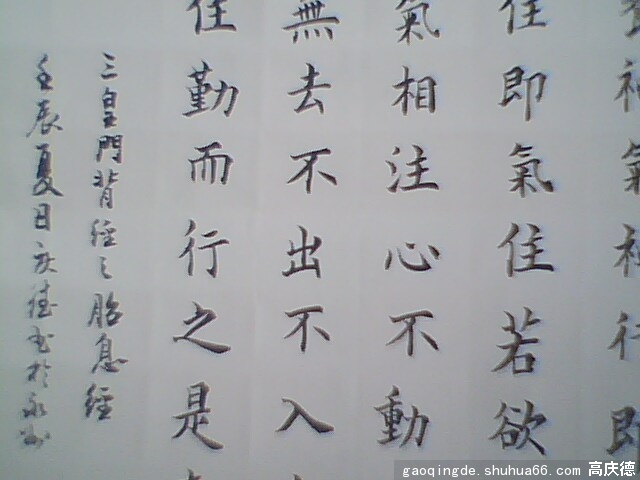 神氣神行即
住即氣住若欲
氣相注心不動
無去不出不入
住勤而行之是
三皇門背經之胎息經
壬辰夏日庆德书於永州
gaoqingde.shuhua66.com 高庆德